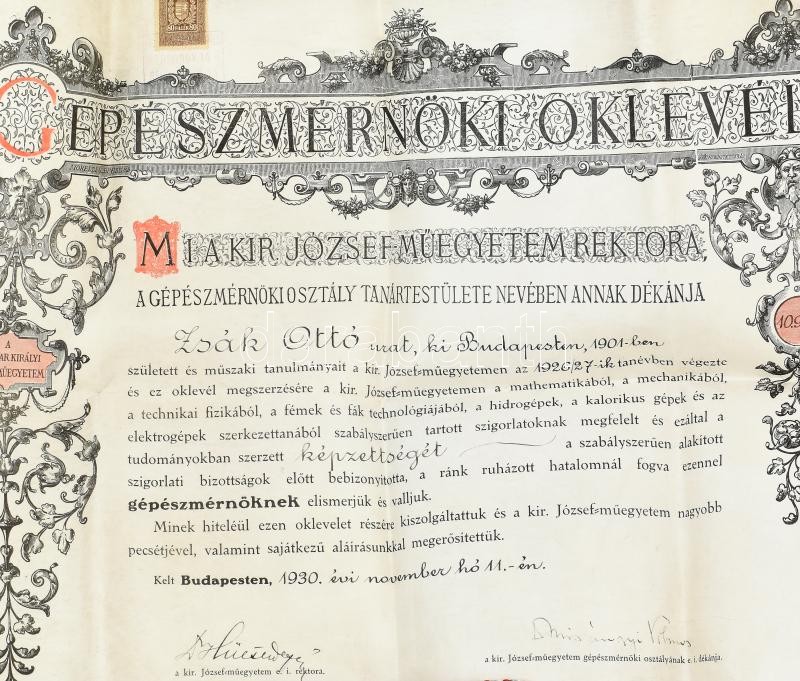 80 FILLÉR 80
GÉPÉSZMÉRNÖKI OKLEVÉL
MI A KIR. JÓZSEF-MŰEGYETEM REKTORA,
A GÉPÉSZMÉRNÖKI OSZTÁLY TANÁRTESTÜLETE NEVÉBEN ANNAK DÉKÁNJA
Zsák Ottó urat, ki Budapesten, 1901-ben
született és műszaki tanulmányait a kir. József-műegyetemen az 1926/27-ik tanévben végezte
és ez oklevél megszerzésére a kir. József-műegyetemen a mathematikából, a mechanikából,
a technikai fizikából, a fémek és fák technológiájából, a hidrogépek, a kalorikus gépek és az
elektrogépek szerkezettanából szabályszerűen tartott szigorlatoknak megfelelt és ezáltal a
tudományokban szerzett képzettségét a szabályszerűen alakított
szigorlati bizottságok előtt bebizonyította, a ránk ruházott hatalomnál fogva ezennel
gépészmérnöknek elismerjük és valljuk.
Minek hiteléül ezen oklevelet részére kiszolgáltattuk és a kir. József-műegyetem nagyobb
pecsétjével, valamint sajátkezű aláírásunkkal megerősítettük.
Kelt Budapesten, 1930. évi november hó 11.-én.
a kir. József-műegyetem e. i. rektora.
a kir. József-műegyetem gépészmérnöki osztályának e. i. dékánja.
A
AR KIRÁLYI
MŰEGYETEM
109